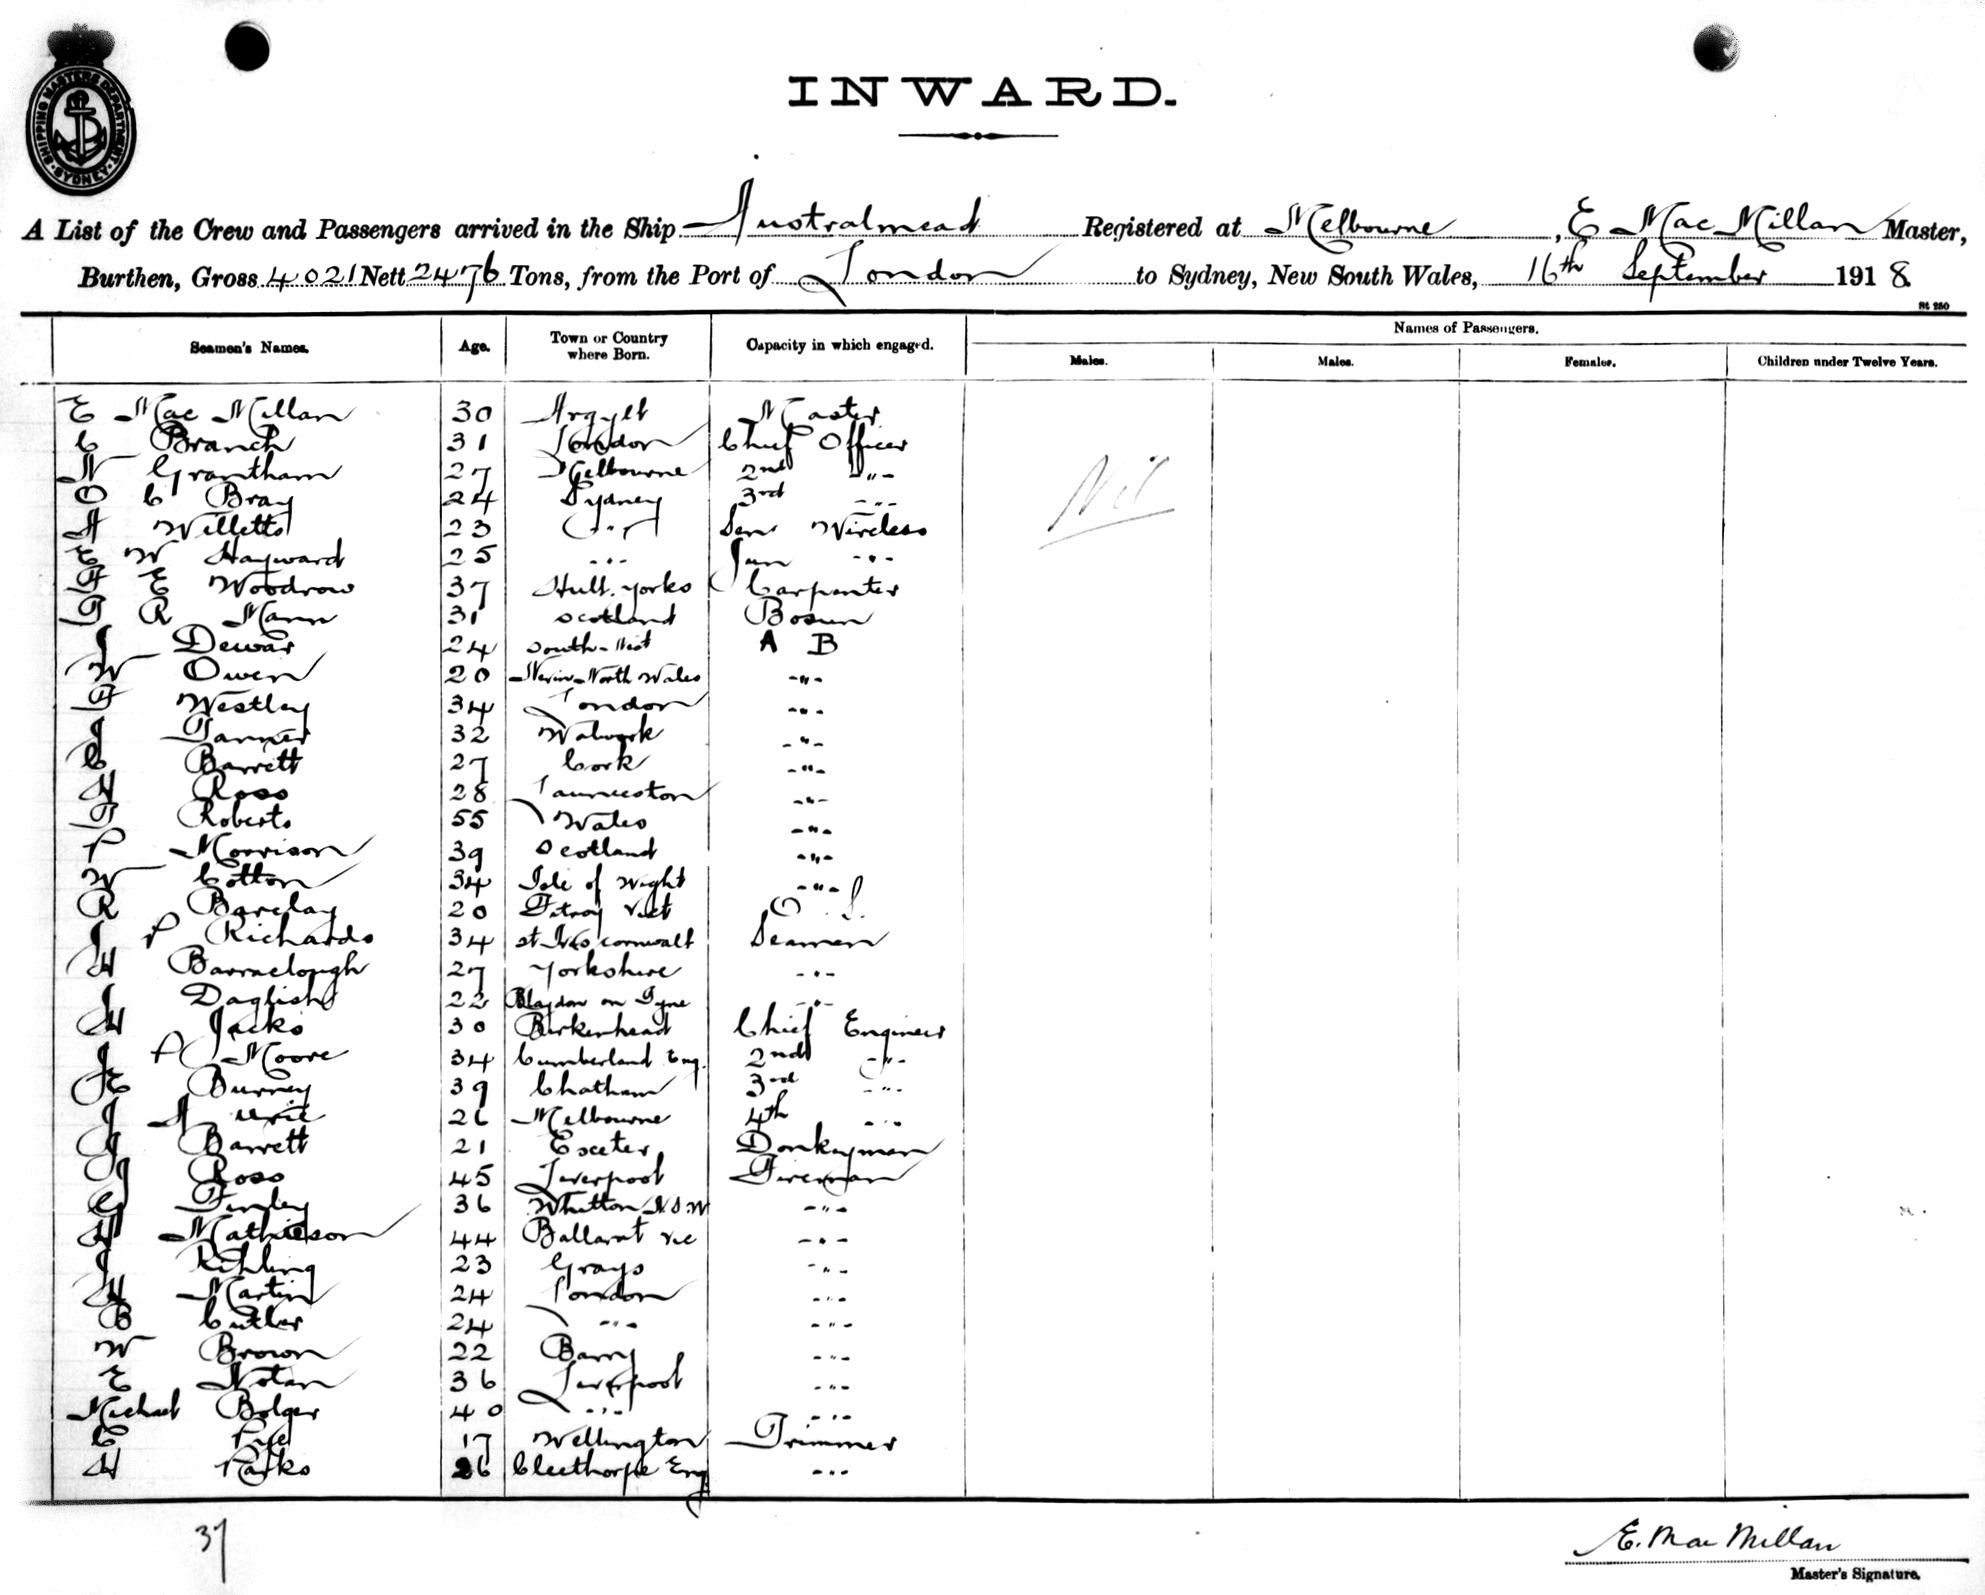 SHIPPING MASTERS DEPARTMENT
SYDNEY
INWARD.
A List of the Crew and Passengers arrived in the Ship Australmead Registered at Melbourne, E Mac Millan Master,
Burthen, Gross 4021 Nett 2476 Tons, from the Port of London to Sydney, New South Wales, 16th September 1918
St 280
Names of Passengers.
Seamen's Names. Age. Town or Country where Born. Capacity in which engaged. Males. Males. Females. Children under Twelve Years.
E Mac Millan 30 Argyll Master
C Branch 31 London Chief Officer
N Grantham 27 Melbourne 2nd -"-
O C Bray 24 Sydney 3rd -"-
Nil
A Willetts 23 -"- Sen Wireless
E W Hayward 25 -"- Jun -"-
E Woodrow 37 Hull. Yorks Carpenter
G R Mann 31 Scotland Bosun
J Dewar 24 South-Uist A B
W Owen 20 Nevin-North Wales -"-
Westley 34 London -"-
J Tanner 32 -"-
C Barrett 27 Cork -"-
H Ross 28 Launceston -"-
G Roberts 55 Wales -"-
P Morrison 39 Scotland -"-
W Cotton 34 Isle of Wight -"-
R Barclay 20 Fitzroy Vict O.S.
J P Richards 34 St Ives Cornwall Seaman
H Barraclough 27 Yorkshire -"-
J Daglish 22 Blaydon on Tyne -"-
H Jacks 30 Birkenhead Chief Engineer
J P Moore 34 Cumberland Eng. 2nd -"-
J E Burney 39 Chatham 3rd -"-
J A Urie 26 Melbourne 4th -"-
J Barrett 21 Exeter Donkeyman
J Ross 45 Liverpool Fireman
G Finley 36 Whitton N S W -"-
H Mathieson 44 Ballarat Vic -"-
J 23 Grays -"-
H Martin 24 London -"-
B Cutler 24 -"- -"-
W Brown 22 Barry -"-
E Nolan 36 Liverpool -"-
Michael Bolger 40 -"- -"-
C Pye 17 Wellington Trimmer
H Parks 26 Cleethorpe Eng -"-
37
E. Mac Millan
Master's Signature.